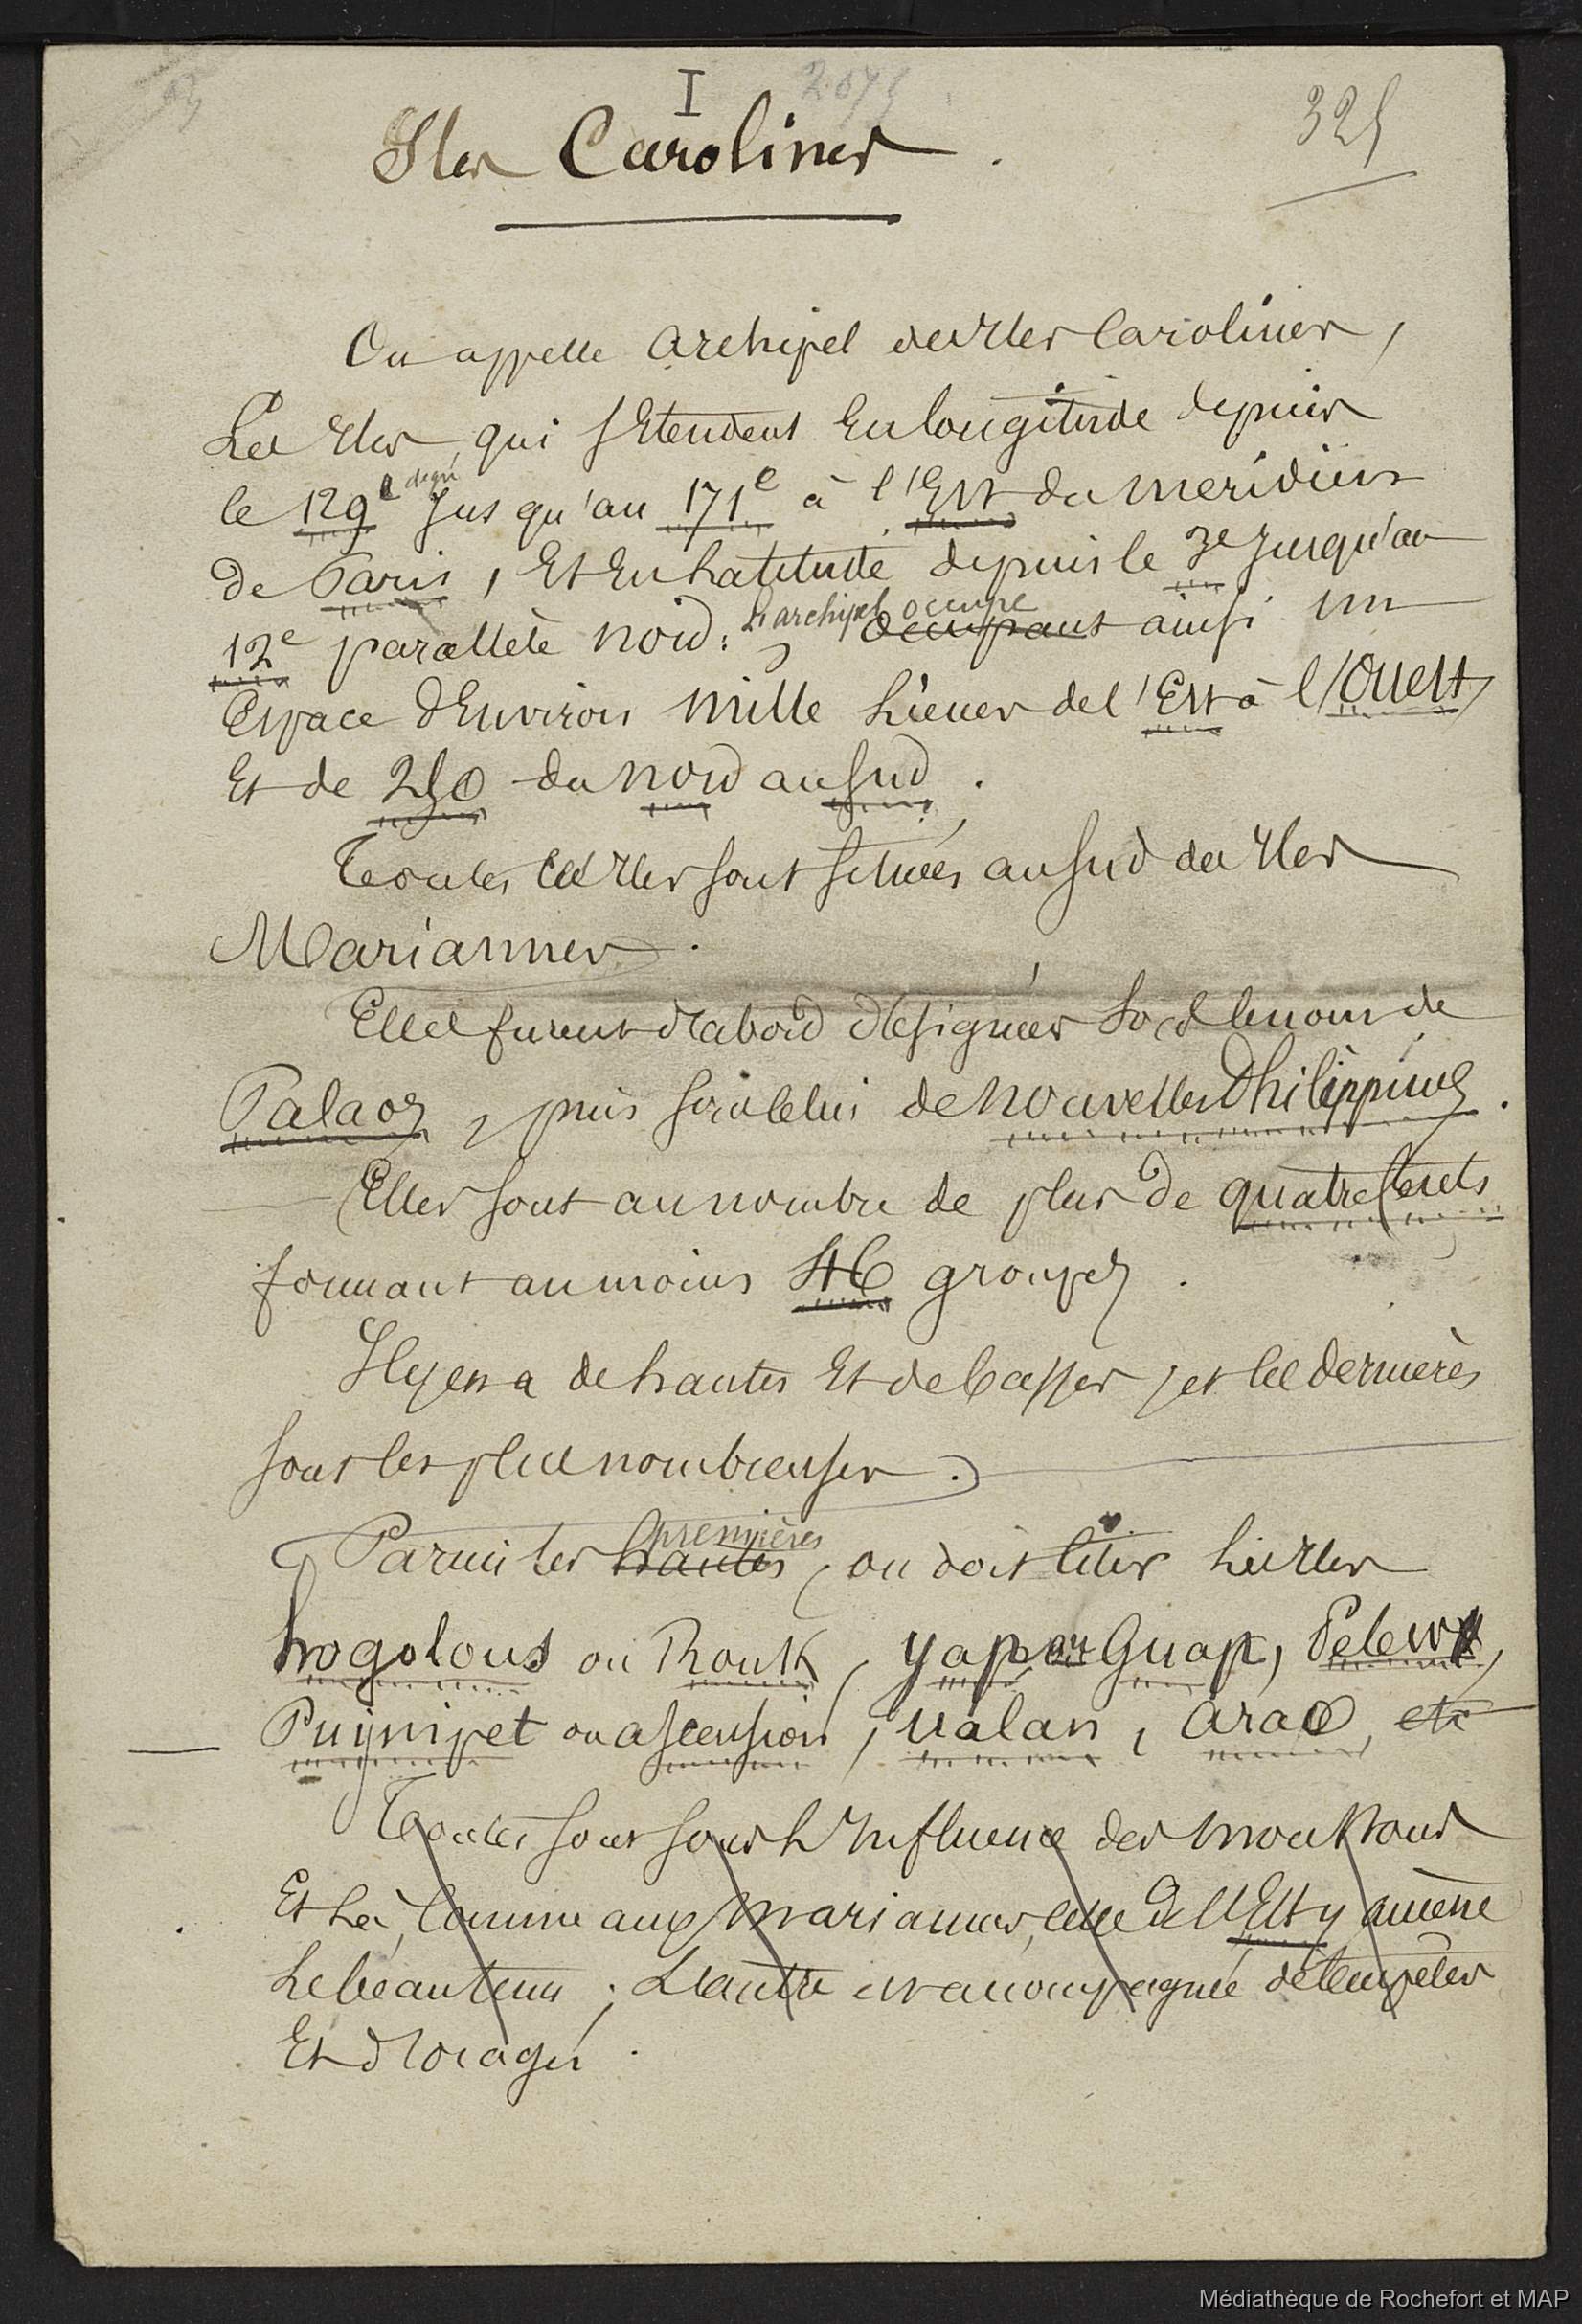 I
325
Iles Carolines.
On appelle Archipel des Iles Carolines,
Les Iles qui s'Etendent En longitude depuis
le 129e degré Jusqu'au 171e à l'Est du méridien
de Paris, Et En Latitude depuis le 3e Jusqu'au
12e parallèle nord; L'archipel occupe occupant ainsi un
Espace d'Environ mille Lieues de l'Est à l'Ouest,
Et de 250 du nord au sud.
Toutes ces Iles sont situées au sud des Iles
Mariannes.
Elles furent d'abord désignées sous le nom de
Palaos, puis sous celui de nouvelles Philippines.
Elles sont au nombre de plus de quatre cents
formant au moins 46 groupes.
Il y en a de hautes Et de basses, et ces dernières
sont les plus nombreuses.
Parmi les hautes premières, on doit citer Les Iles
hogolous ou Rouk, yap ou Guap, Pelew,
Puynipet ou ascension, ualan, arao, etc
Toutes sont sous L'Influence des moussons
Et Là, Comme aux Mariannes, celle de l'Est y amène
Le beau temps; L'autre est accompagnée de tempêtes
Et d'orages.
Médiathèque de Rochefort et MAP